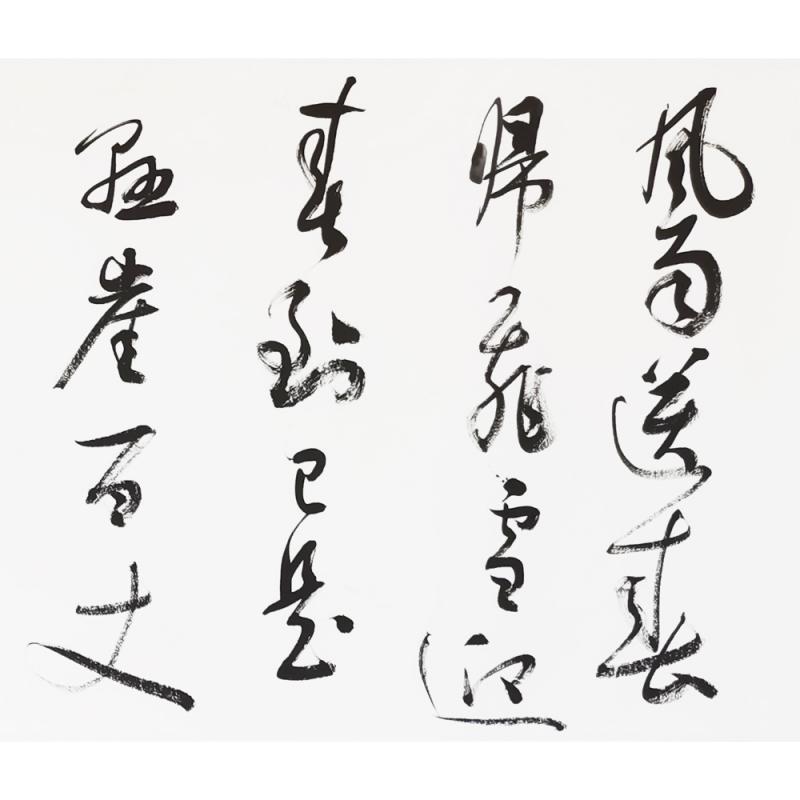 風雨送春
帰飛雪迎
春到已是
懸崖百丈